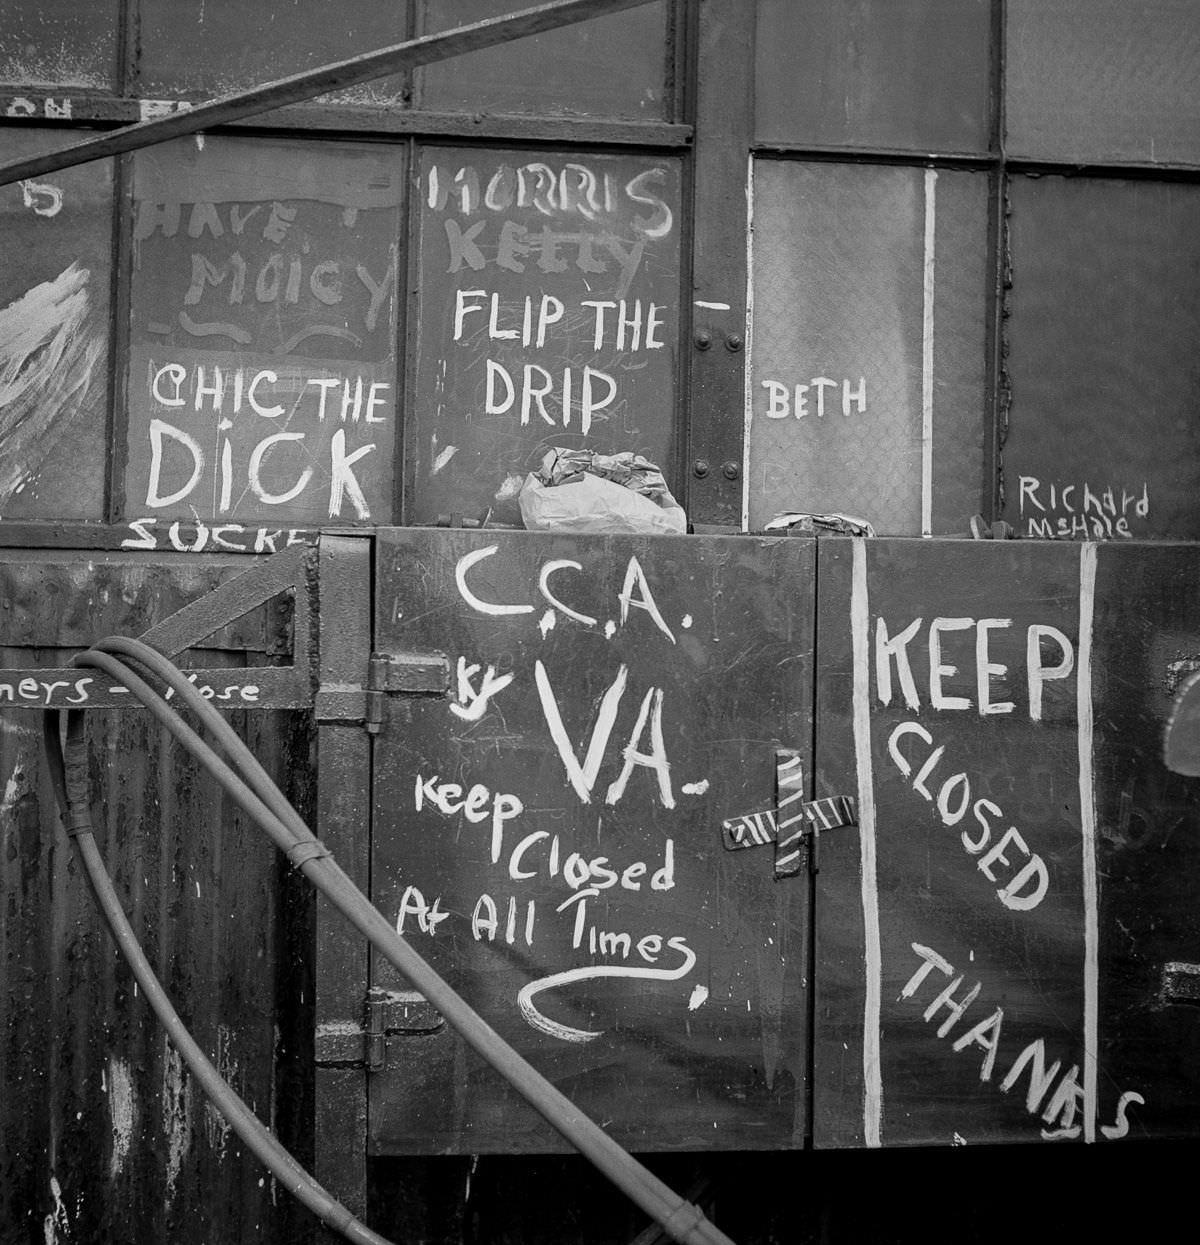 HAVE I
MOICY
CHIC THE
DiCK
SUCKE
MORRIS
KELLY
FLIP THE
DRIP
BETH
Richard
McHale
C.C.A.
KY
VA.
Keep
Closed
At All Times
KEEP
CLOSED
THANKS
ners - Nose